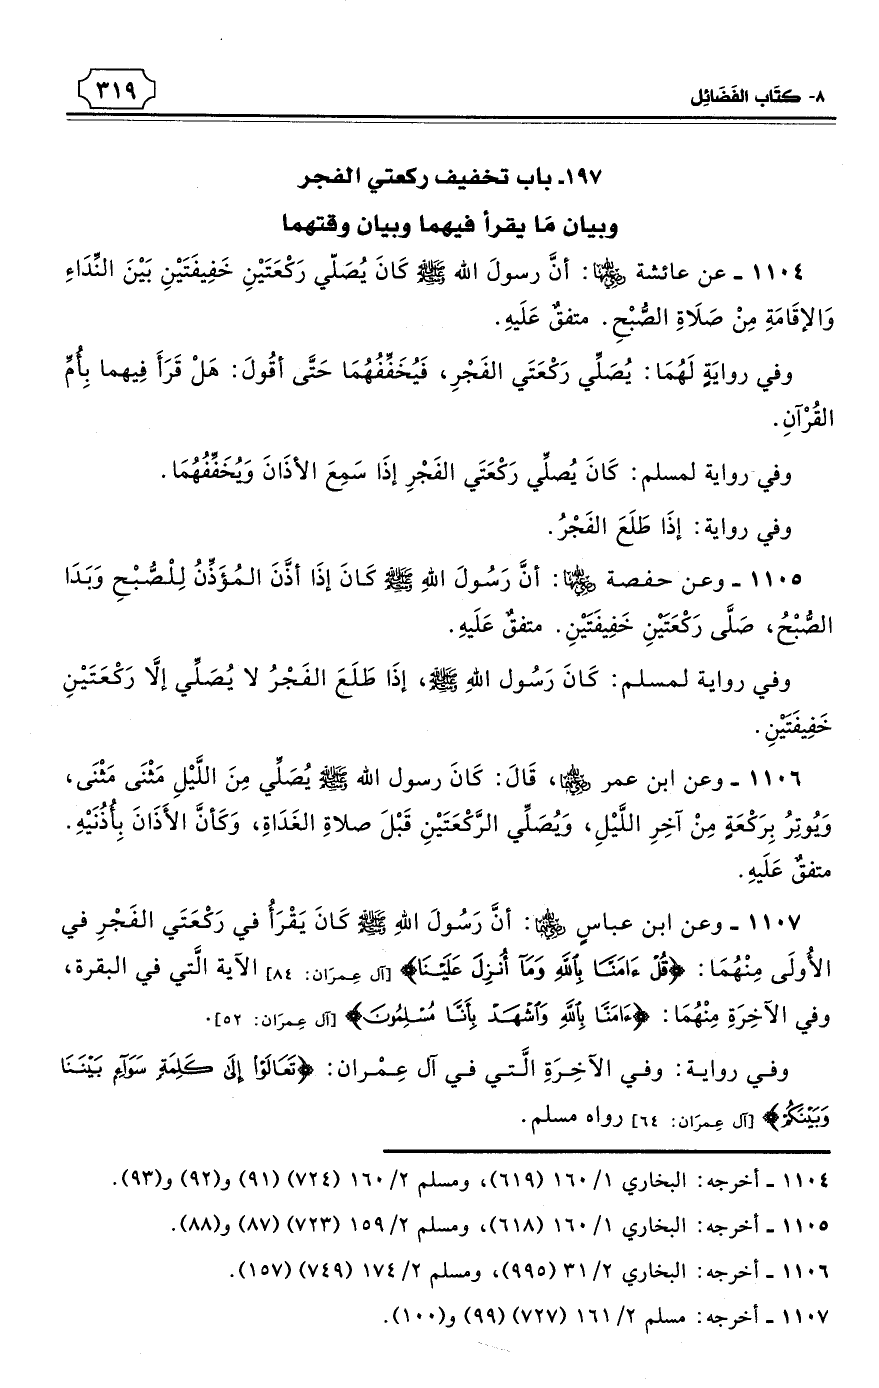 ٨- كتَاب الفَضَائِل
٣١٩
١٩٧ـ باب تخفيف ركعتي الفجر
وبيان مَا يقرأ فيهما وبيان وقتهما
١١٠٤ ـ عن عائشة رضي الله عنها: أنَّ رسولَ الله ﷺ كَانَ يُصَلّي رَكْعَتَيْنِ خَفِيفَتَيْنِ بَيْنَ النِّدَاءِ
وَالإقَامَةِ مِنْ صَلَاةِ الصُّبْحِ. متفقٌ عَلَيهِ.
وفي روايَةٍ لَهُمَا: يُصَلِّي رَكْعَتَي الفَجْرِ، فَيُخَفِّفُهُمَا حَتَّى أقُولَ: هَلْ قَرَأَ فِيهما بِأُمِّ
القُرْآنِ.
وفي رواية لمسلم: كَانَ يُصلِّي رَكْعَتَي الفَجْرِ إذَا سَمِعَ الأذَانَ وَيُخَفِّفُهُمَا.
وفي رواية: إذَا طَلَعَ الفَجْرُ.
١١٠٥ ـ وعن حفصة رضي الله عنها: أنَّ رَسُولَ اللهِ ﷺ كَانَ إذَا أذَّنَ المُؤَذِّنُ لِلْصُّبْحِ وَبَدَا
الصُّبْحُ، صَلَّى رَكْعَتَيْنِ خَفِيفَتَيْنِ. متفقٌ عَلَيهِ.
وفي رواية لمسلم: كَانَ رَسُول اللهِ ﷺ، إذَا طَلَعَ الفَجْرُ لا يُصَلِّي إلَّا رَكْعَتَيْنِ
خَفِيفَتَيْنِ.
١١٠٦ ـ وعن ابن عمر رضي الله عنهما، قَالَ: كَانَ رسول الله ﷺ يُصَلِّي مِنَ اللَّيْلِ مَثْنَى مَثْنَى،
وَيُوتِرُ بِرَكْعَةٍ مِنْ آخِرِ اللَّيْلِ، وَيُصَلِّي الرَّكْعَتَيْنِ قَبْلَ صلاةِ الغَدَاةِ، وَكَأنَّ الأَذَانَ بِأُذُنَيْهِ.
متفقٌ عَلَيهِ.
١١٠٧ ـ وعن ابن عباسٍ رضي الله عنهما: أنَّ رَسُولَ اللهِ ﷺ كَانَ يَقْرَأُ في رَكْعَتَي الفَجْرِ في
الأُولَى مِنْهُمَا: ﴿قُلْ ءَامَنَّا بِٱللَّهِ وَمَآ أُنزِلَ عَلَيْنَا﴾ [آل عِمرَان: ٨٤] الآية الَّتي في البقرة،
وفي الآخِرَةِ مِنْهُمَا: ﴿ءَامَنَّا بِٱللَّهِ وَٱشْهَدْ بِأَنَّا مُسْلِمُونَ﴾ [آل عِمرَان: ٥٢].
وفي رواية: وفي الآخِرَةِ الَّتي في آل عِمْران: ﴿تَعَالَوْا۟ إِلَىٰ كَلِمَةٍ سَوَآءٍ بَيْنَنَا
وَبَيْنَكُمْ﴾ [آل عِمرَان: ٦٤] رواه مسلم.
١١٠٤ ـ أخرجه: البخاري ١/ ١٦٠ (٦١٩)، ومسلم ٢/ ١٦٠ (٧٢٤) (٩١) و(٩٢) و(٩٣).
١١٠٥ ـ أخرجه: البخاري ١/ ١٦٠ (٦١٨)، ومسلم ٢/ ١٥٩ (٧٢٣) (٨٧) و(٨٨).
١١٠٦ ـ أخرجه: البخاري ٢/ ٣١ (٩٩٥)، ومسلم ٢/ ١٧٤ (٧٤٩) (١٥٧).
١١٠٧ ـ أخرجه: مسلم ٢/ ١٦١ (٧٢٧) (٩٩) و(١٠٠).